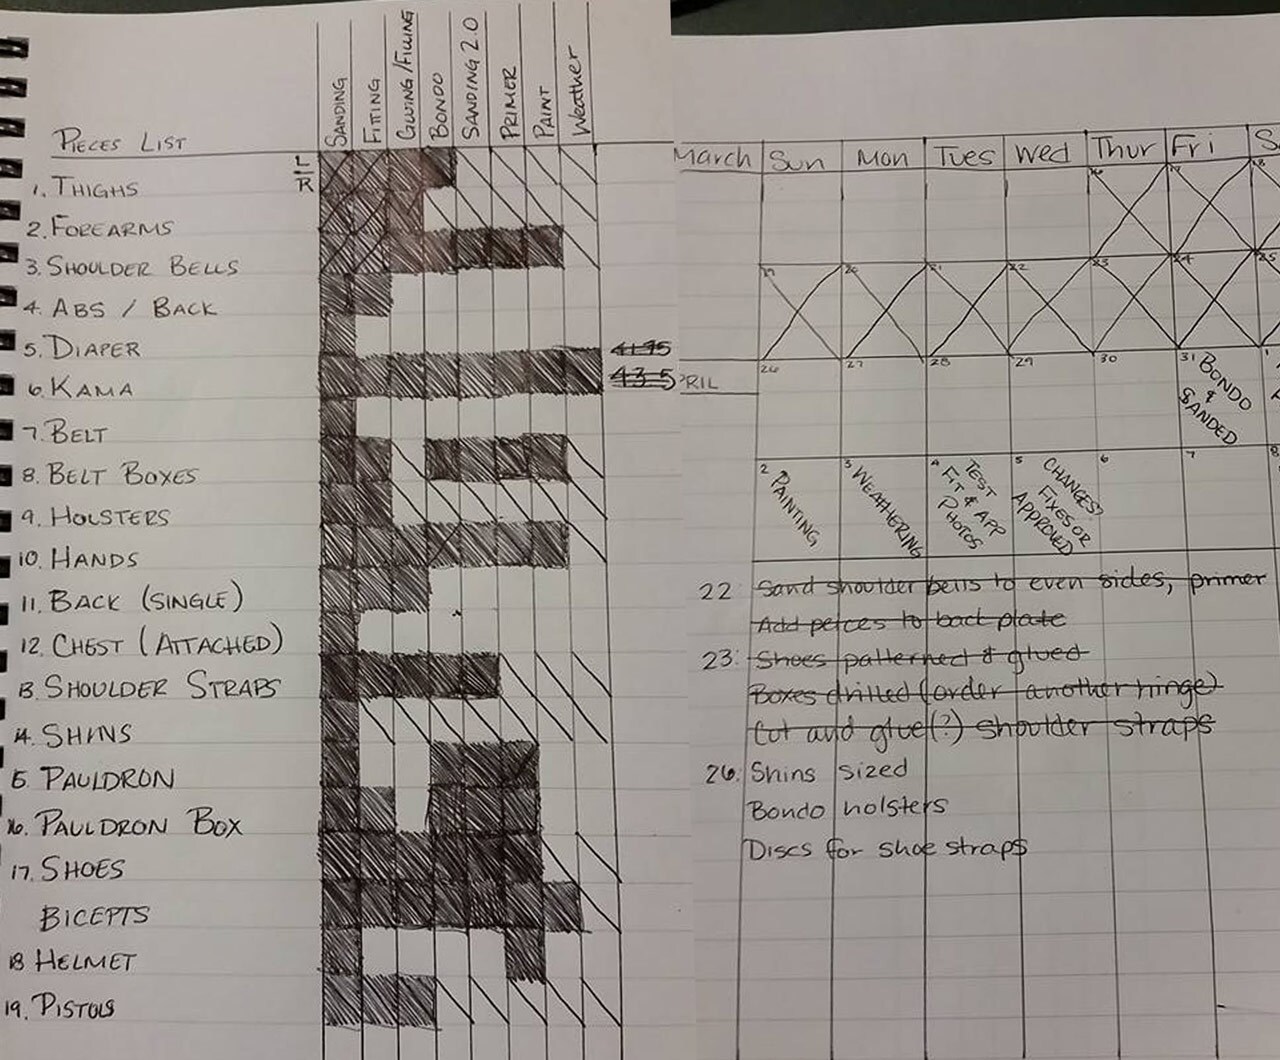 SANDING
FITTING
GLUING/FILLING
BONDO
SANDING 2.0
PRIMER
PAINT
Weather
PIECES LIST
L
R
1. THIGHS
2. FOREARMS
3. SHOULDER BELLS
4. ABS / BACK
5. DIAPER
6. KAMA
7. BELT
8. BELT BOXES
9. HOLSTERS
10. HANDS
11. BACK (SINGLE)
12. CHEST (ATTACHED)
13. SHOULDER STRAPS
14. SHINS
15. PAULDRON
16. PAULDRON BOX
17. SHOES
BICEPTS
18 HELMET
19. PISTOLS
March Sun Mon Tues Wed Thur Fri S
17
20 21 22 23 24 25
26 27 28 29 30 31 BONDO & SANDED 1
PRIL
2 PAINTING,
3 WEATHERING
4 TEST FIT & APP PHOTOS
5 CHANGES? FIXES OR APPROVED
6 7 8
22: Sand shoulder bells to even sides, primer
Add peices to back plate
23: Shoes patterned & glued
Boxes drilled (order another hinge)
Cut and glue(?) shoulder straps
26: Shins sized
Bondo holsters
Discs for shoe straps